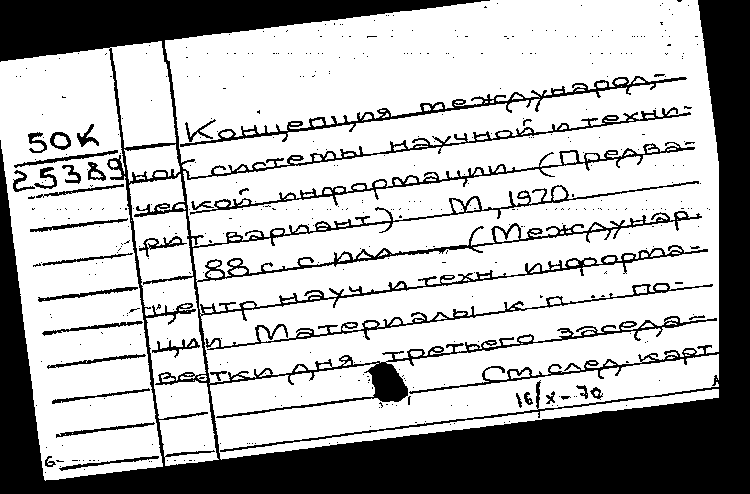 50К
25389
Концепция международ-
ной системы научной и техни-
ческой информации. (Предва-
рит. вариант). М., 1970.
88 с. с илл. (Междунар.
центр науч. и техн. информа-
ции. Материалы к п. ... по-
вестки дня третьего заседа-
См. след. карт.
16/X-70